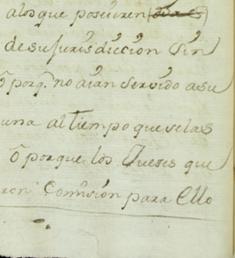 alos que poseieren
de su Jurisdiccion Sin
ô porq.e no aian Servido a su
una al tiempo que se las
ô porque los Jueses que
ron Comision para Ello